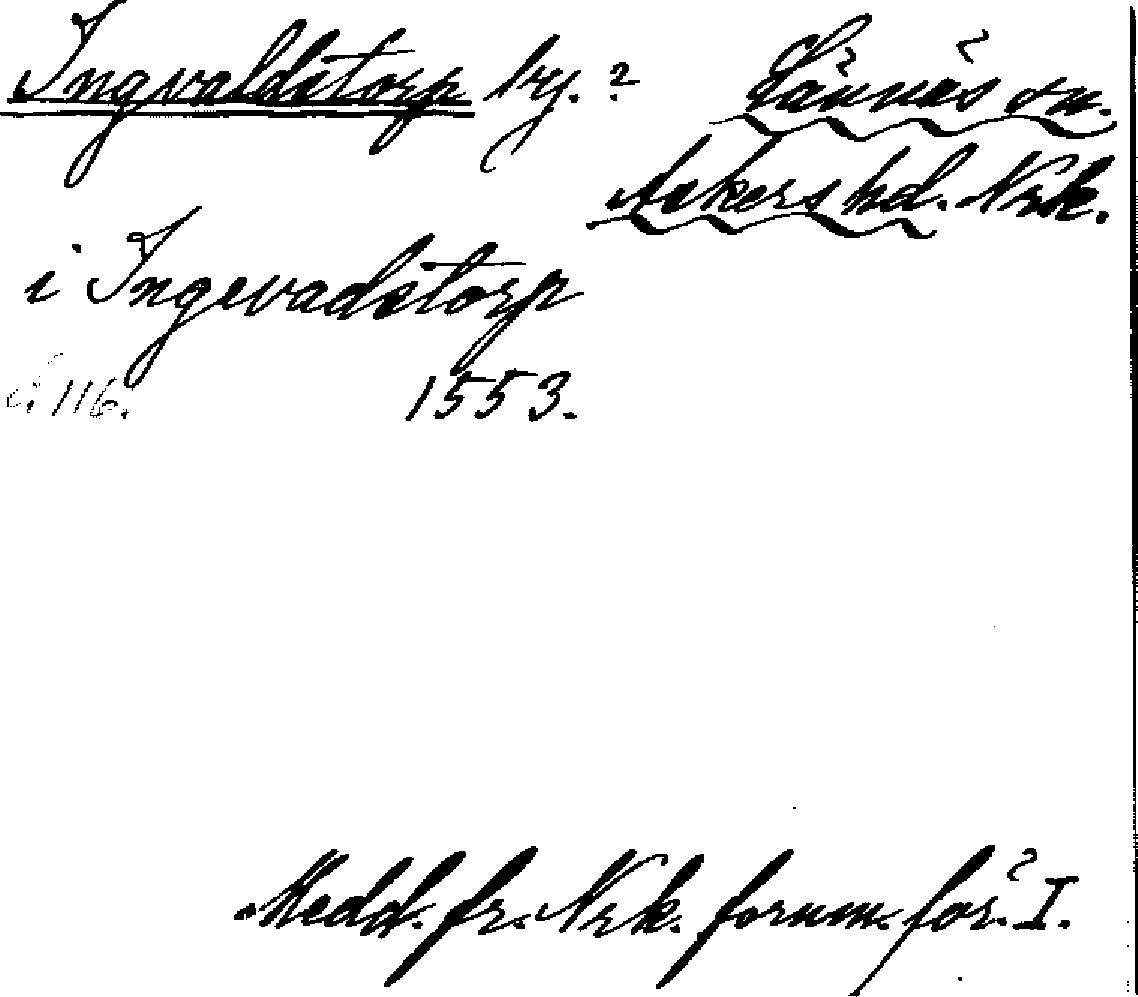 Ingvaldstorp by.? Lännäs sn.
Askers hd. Nrk.
i Ingevadstorp
s. 116. 1553.
Medd. fr. Nrk. fornm. för. I.